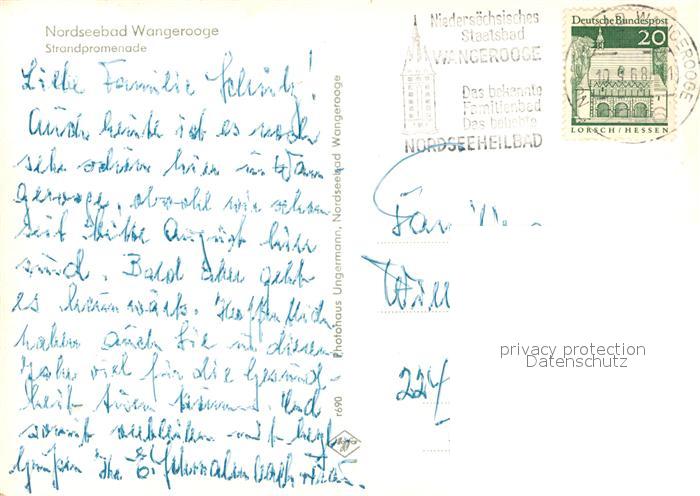 Nordseebad Wangerooge
Strandpromenade
Liebe Familie Schütz!
Auch heute ist es noch
sehr schön hier in Wan-
gerooge, obwohl wir schon
seit Mitte August hier
sind. Bald aber geht
es heimwärts. Hoffentlich
haben auch Sie in diesem
Jahr viel für die Gesund-
heit tun können. Und
somit verbleiben mit herzl.
Grüßen Ihre
Photohaus Ungermann, Nordseebad Wangerooge
r690
Niedersächsisches
Staatsbad
WANGEROOGE
Das bekannte
Familienbad
Das beliebte
NORDSEEHEILBAD
Deutsche Bundespost
20
LORSCH/HESSEN
WANGEROOGE
10.9.68
Fam
224
privacy protection
Datenschutz